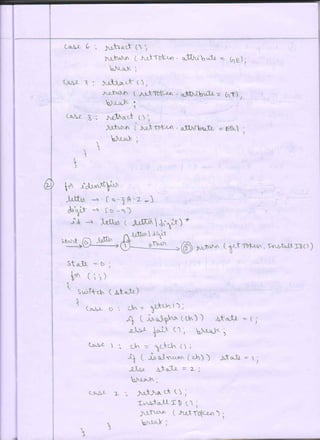 case 6 : retract ();
return ( retToken . attribute = GE);
break ;
case 7 : retract ();
return ( retToken . attribute = GT);
break ;
case 8 : retract ();
return ( retToken . attribute =
break ;
}
}
② for identifier
letter → [a-z A-Z _]
digit → [0-9]
id → letter ( letter | digit )*
letter | digit
start 0 letter 1 other 2 return ( getToken, InstallID())
state = 0 ;
for (;;)
{ switch ( state )
{ case 0 : ch = getch();
if ( isalpha (ch) ) state = 1 ;
else fail (); break ;
case 1 : ch = getch ();
if ( isalnum (ch)) state = 1 ;
else state = 2 ;
break ;
case 2 : retract ();
InstallID ();
return ( retToken );
break ;
} }
}